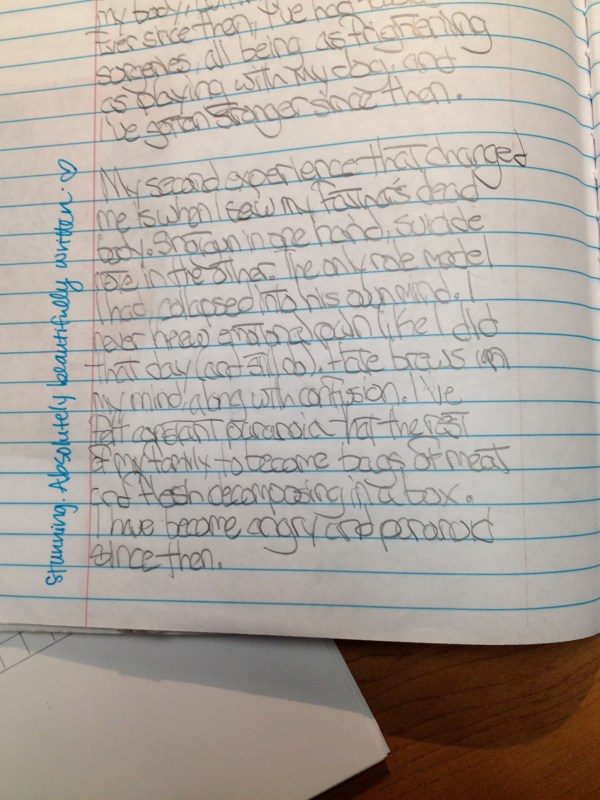 my body,
Ever since then, I've had
scrapies, all being as frightening
as playing with my dog, and
I've gotten stronger since then.
My second experience that changed
me is when I sew my Father's dead
body. Shotgun in one hand, suicide
note in the other. The only role model
I had colapsed into his own mind. I
never knew emotional pain like I did
that day (and still do). Hate brews in
my mind, along with confusion. I've
felt constant paranoia that the rest
of my family to become bags of meat
and flesh decomposing in a box.
I have become angry and paranoid
since then.
stunning. Absolutely beautifully written. ♡